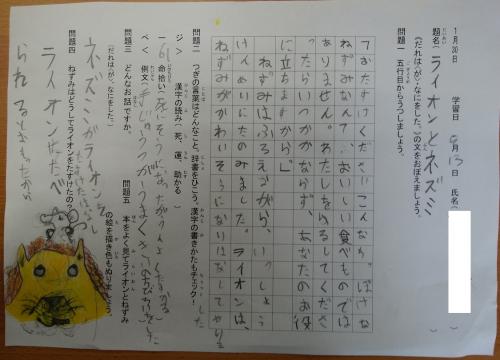 1月30日　学習日　6月13日　氏名（　）
題名（ライオンとネズミ）
《だれは（が）、なにをした。》の文をおぼえましょう。
問題一　五行目からうつしましょう。
ておたすけください。こんな小っぽけな
ねずみなんて、おいしい食べものでは
ありません。わたしをにがしてくださ
ったら、いつかかならず、あなたのお役
に立ちますから」
ねずみはふるえながら、いっしょう
けんめいにたのみました。ライオンは、
ねずみがかわいそうになりはなしてやりま
した
問題二　つぎの言葉はどんなこと。辞書をひこう。漢字の書きかたもチェック！
ジ＞　漢字の読み（死、運、助かる）
命拾い
例文（
問題三　どんなお話ですか。
《だれは（が）、なにをした。》
ネズミがライオンを
たすけたはなし
問題四　ねずみはどうしてライオンをたすけたの？
ライオンにたべ
られるとおもったから
問題五　本をよく見てライオンとねずみ
の絵を描き色もぬりましょう。